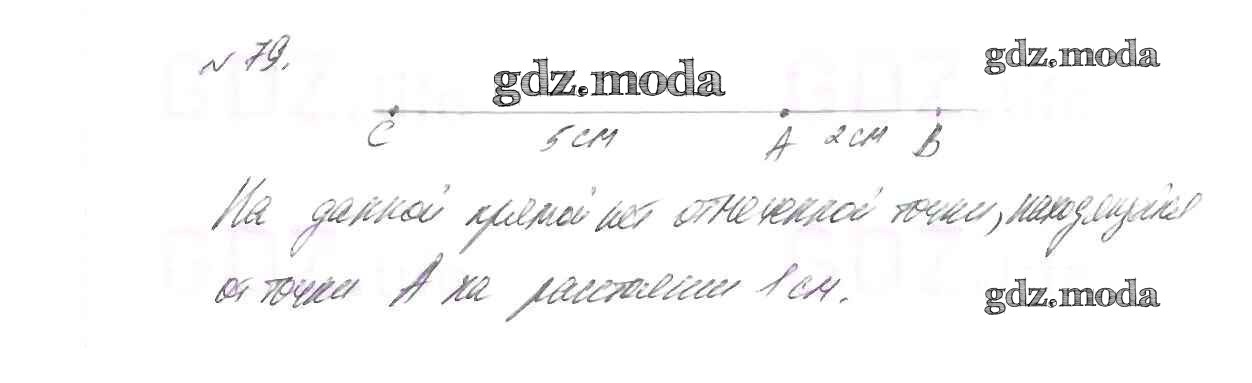 № 79.
gdz.moda
gdz.moda
C 5 см A 2 см B
На данной прямой нет отмеченной точки, находящейся
от точки А на расстоянии 1 см.
gdz.moda